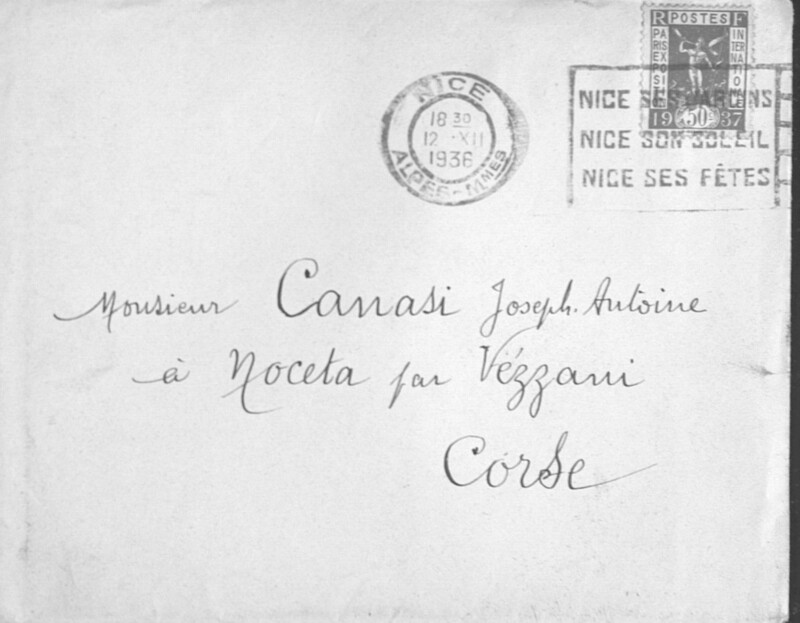 R POSTES F
PARIS EXPOSI
INTERNATIONE
1937
50c
NICE
18 30
12 -XII
1936
ALPES-MMES
NICE SES JARDINS
NICE SON SOLEIL
NICE SES FÊTES
Monsieur Canasi Joseph. Antoine
à Noceta par Vézzani
Corse